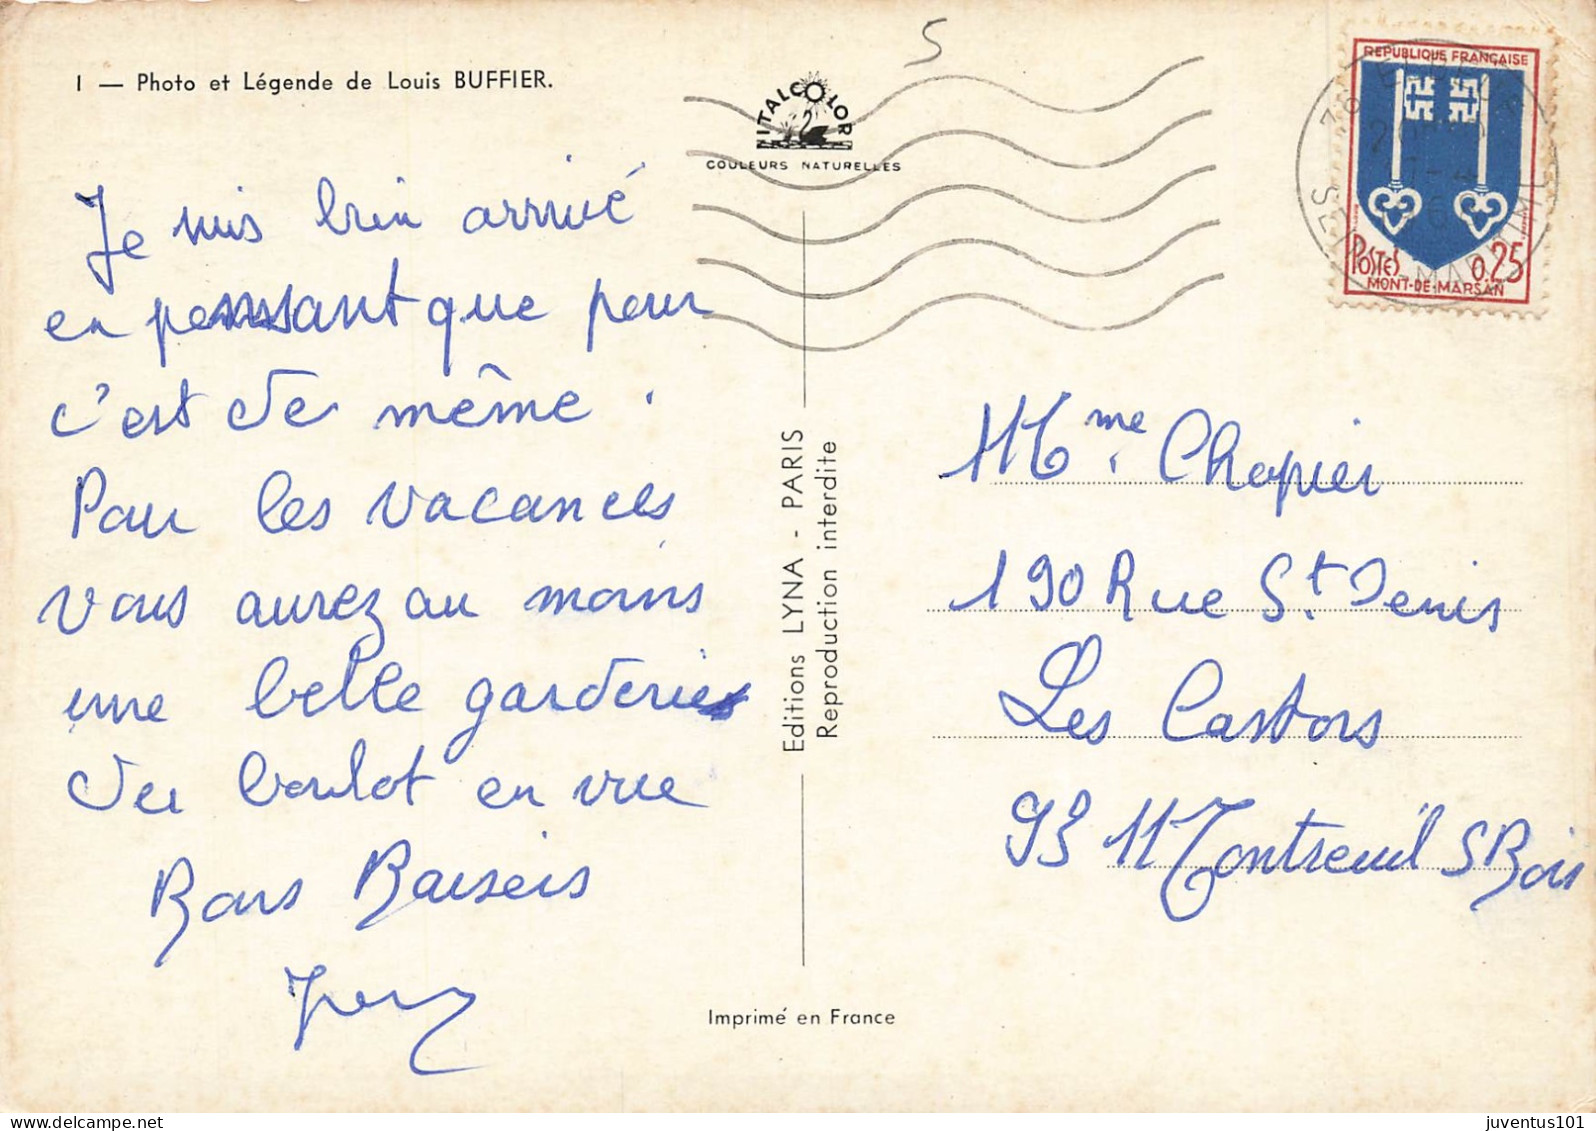 I — Photo et Légende de Louis BUFFIER.
5
ITALCOLOR
COULEURS NATURELLES
REPUBLIQUE FRANÇAISE
POSTES 0,25
MONT-DE-MARSAN
Je suis bien arrivé
en pensant que pour
c'est de même.
Pour les vacances
vous aurez au moins
une belle garderie
du boulot en vue
Bons Baisers
Editions LYNA - PARIS
Reproduction interdite
Mme Chopier
190 Rue St. Denis
Les Castors
93 Montreuil S Bois
Imprimé en France
juventus101